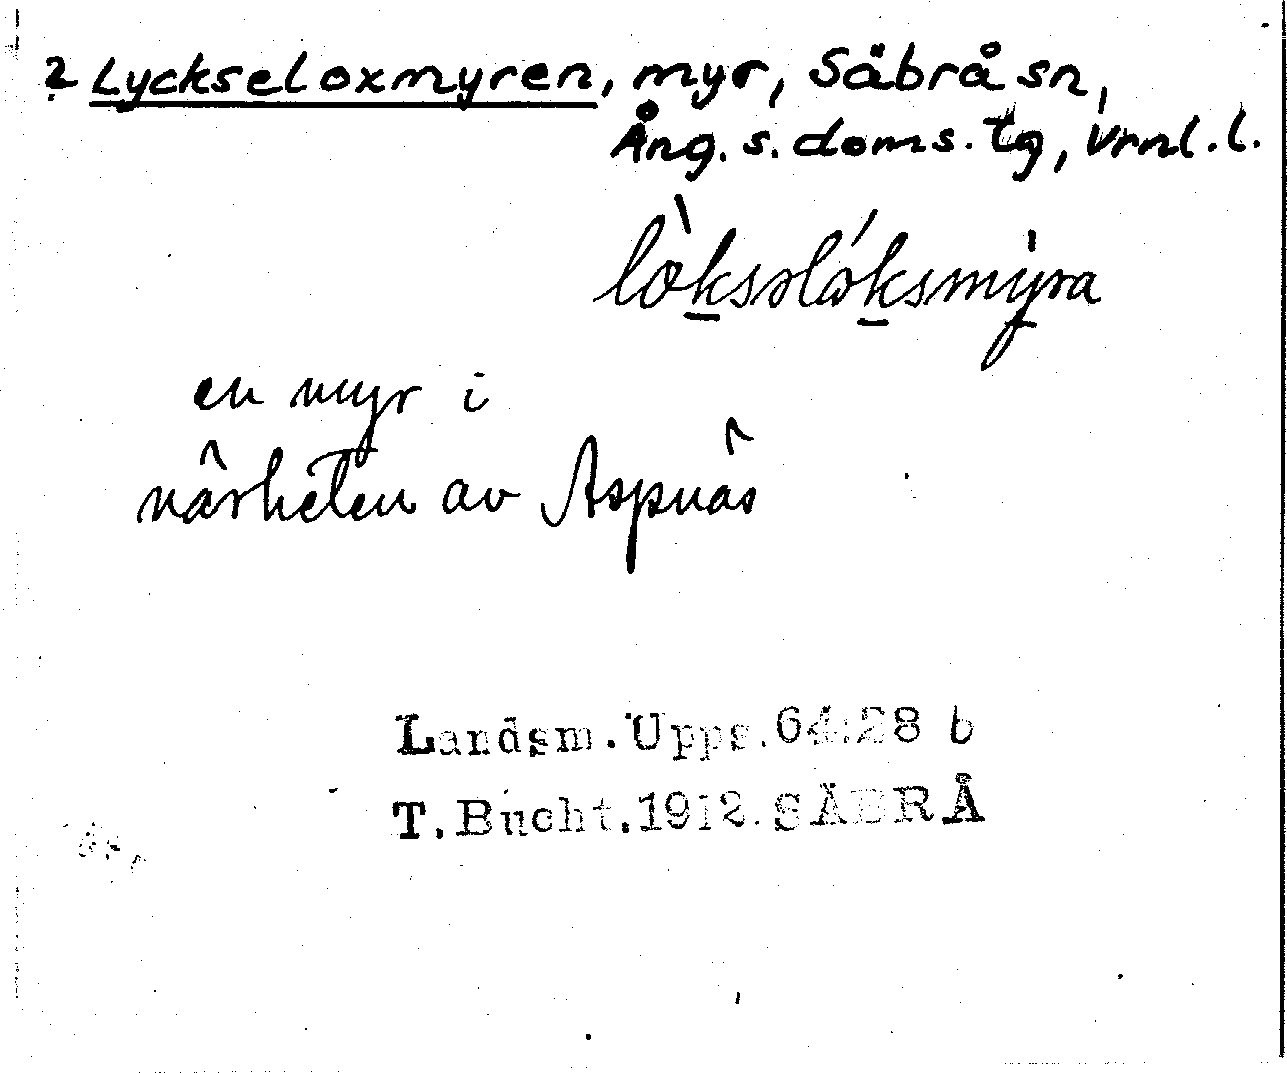 ? Lyckseloxmyren, myr, Säbrå sn,
Ång. s. doms. tg, Vrnl. l.
lòksəlóksmỳra
en myr i
närheten av Aspnäs
Landsm. Upps. 64:28 b
T. Bucht. 1912. SÄBRÅ